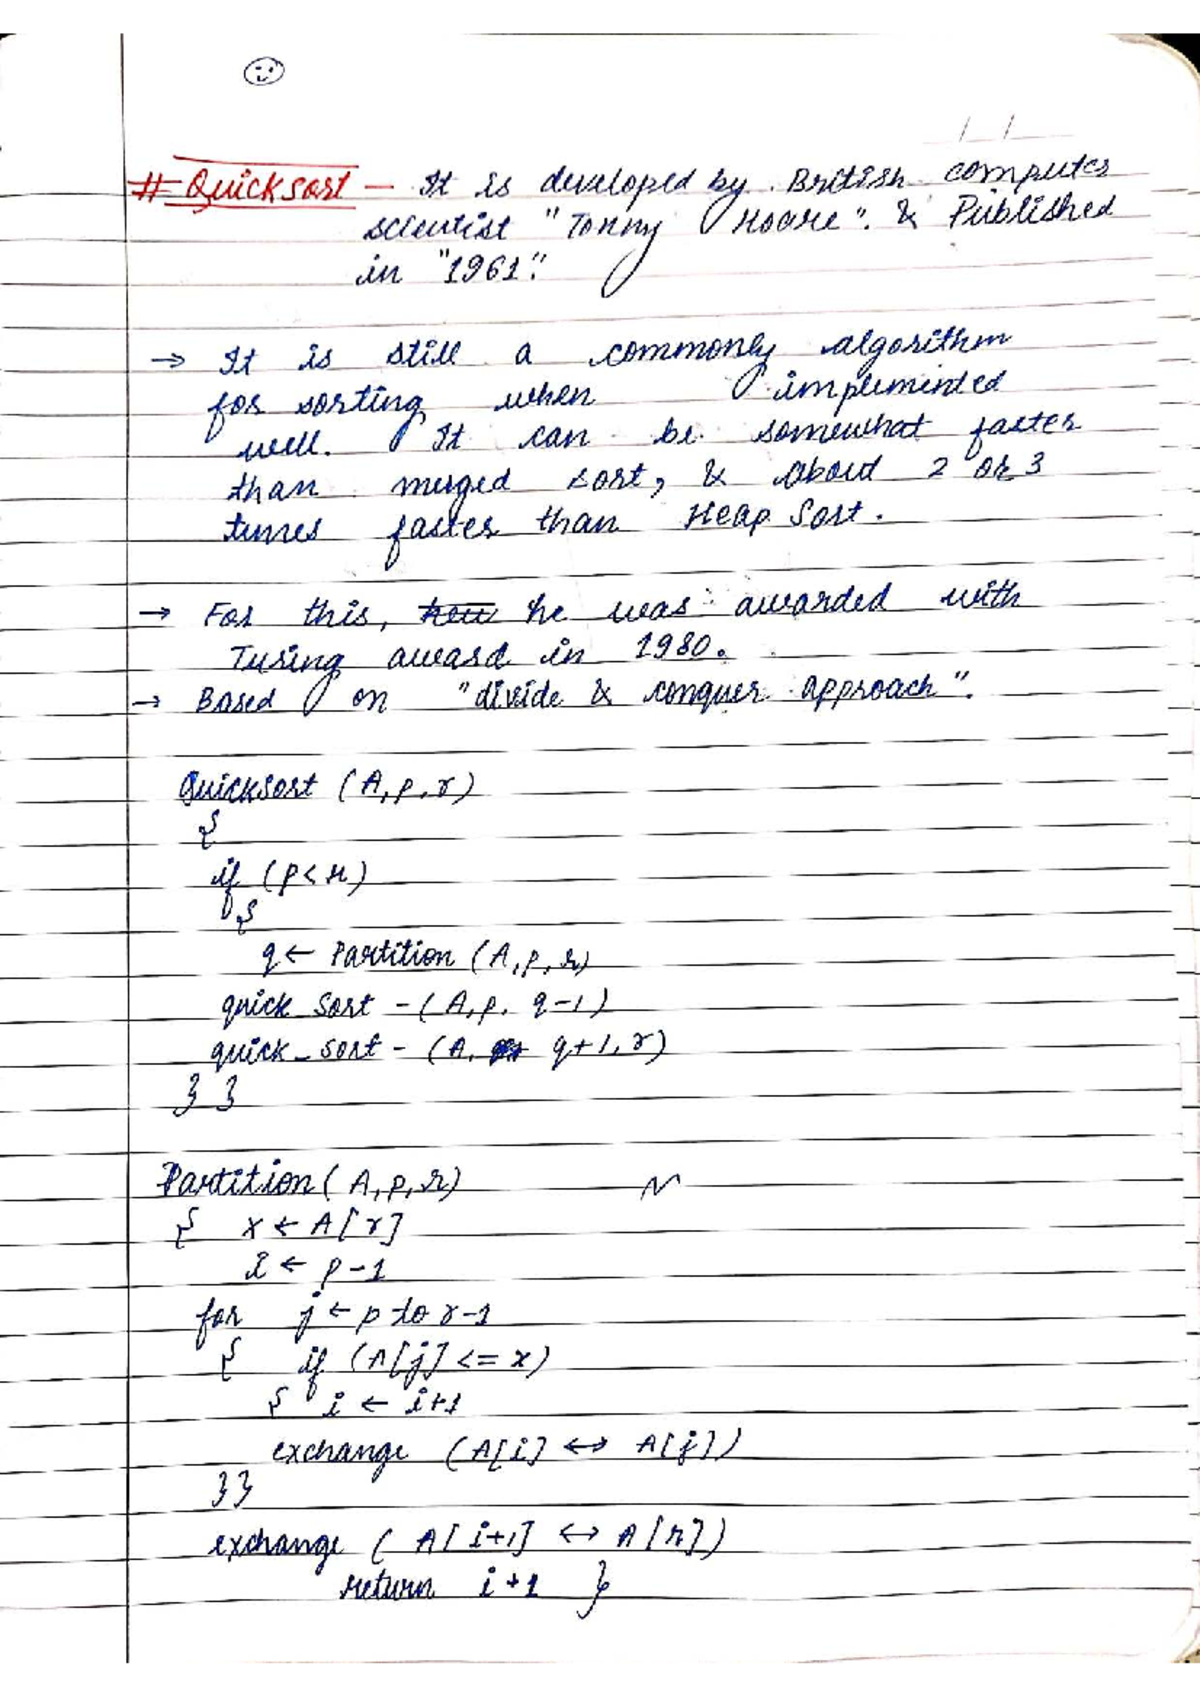 # Quicksort - It is developed by British computer
scientist "Tonny Hoare". & Published
in "1961".
→ It is still a commonly algorithm
for sorting when implemented
well. It can be somewhat faster
than merged sort, & about 2 or 3
times faster than Heap Sort.
→ For this, he was awarded with
Turing award in 1980.
→ Based on "divide & conquer approach".
Quicksort (A, p, r)
{
if (p < r)
{
q ← Partition (A, p, r)
quick Sort - (A, p, q-1)
quick_sort - (A, q+1, r)
} }
Partition (A, p, r)
{ x ← A[r]
i ← p-1
for j ← p to r-1
{ if (A[j] <= x)
{ i ← i+1
exchange (A[i] ↔ A[j])
}}
exchange (A[i+1] ↔ A[r])
return i+1 }